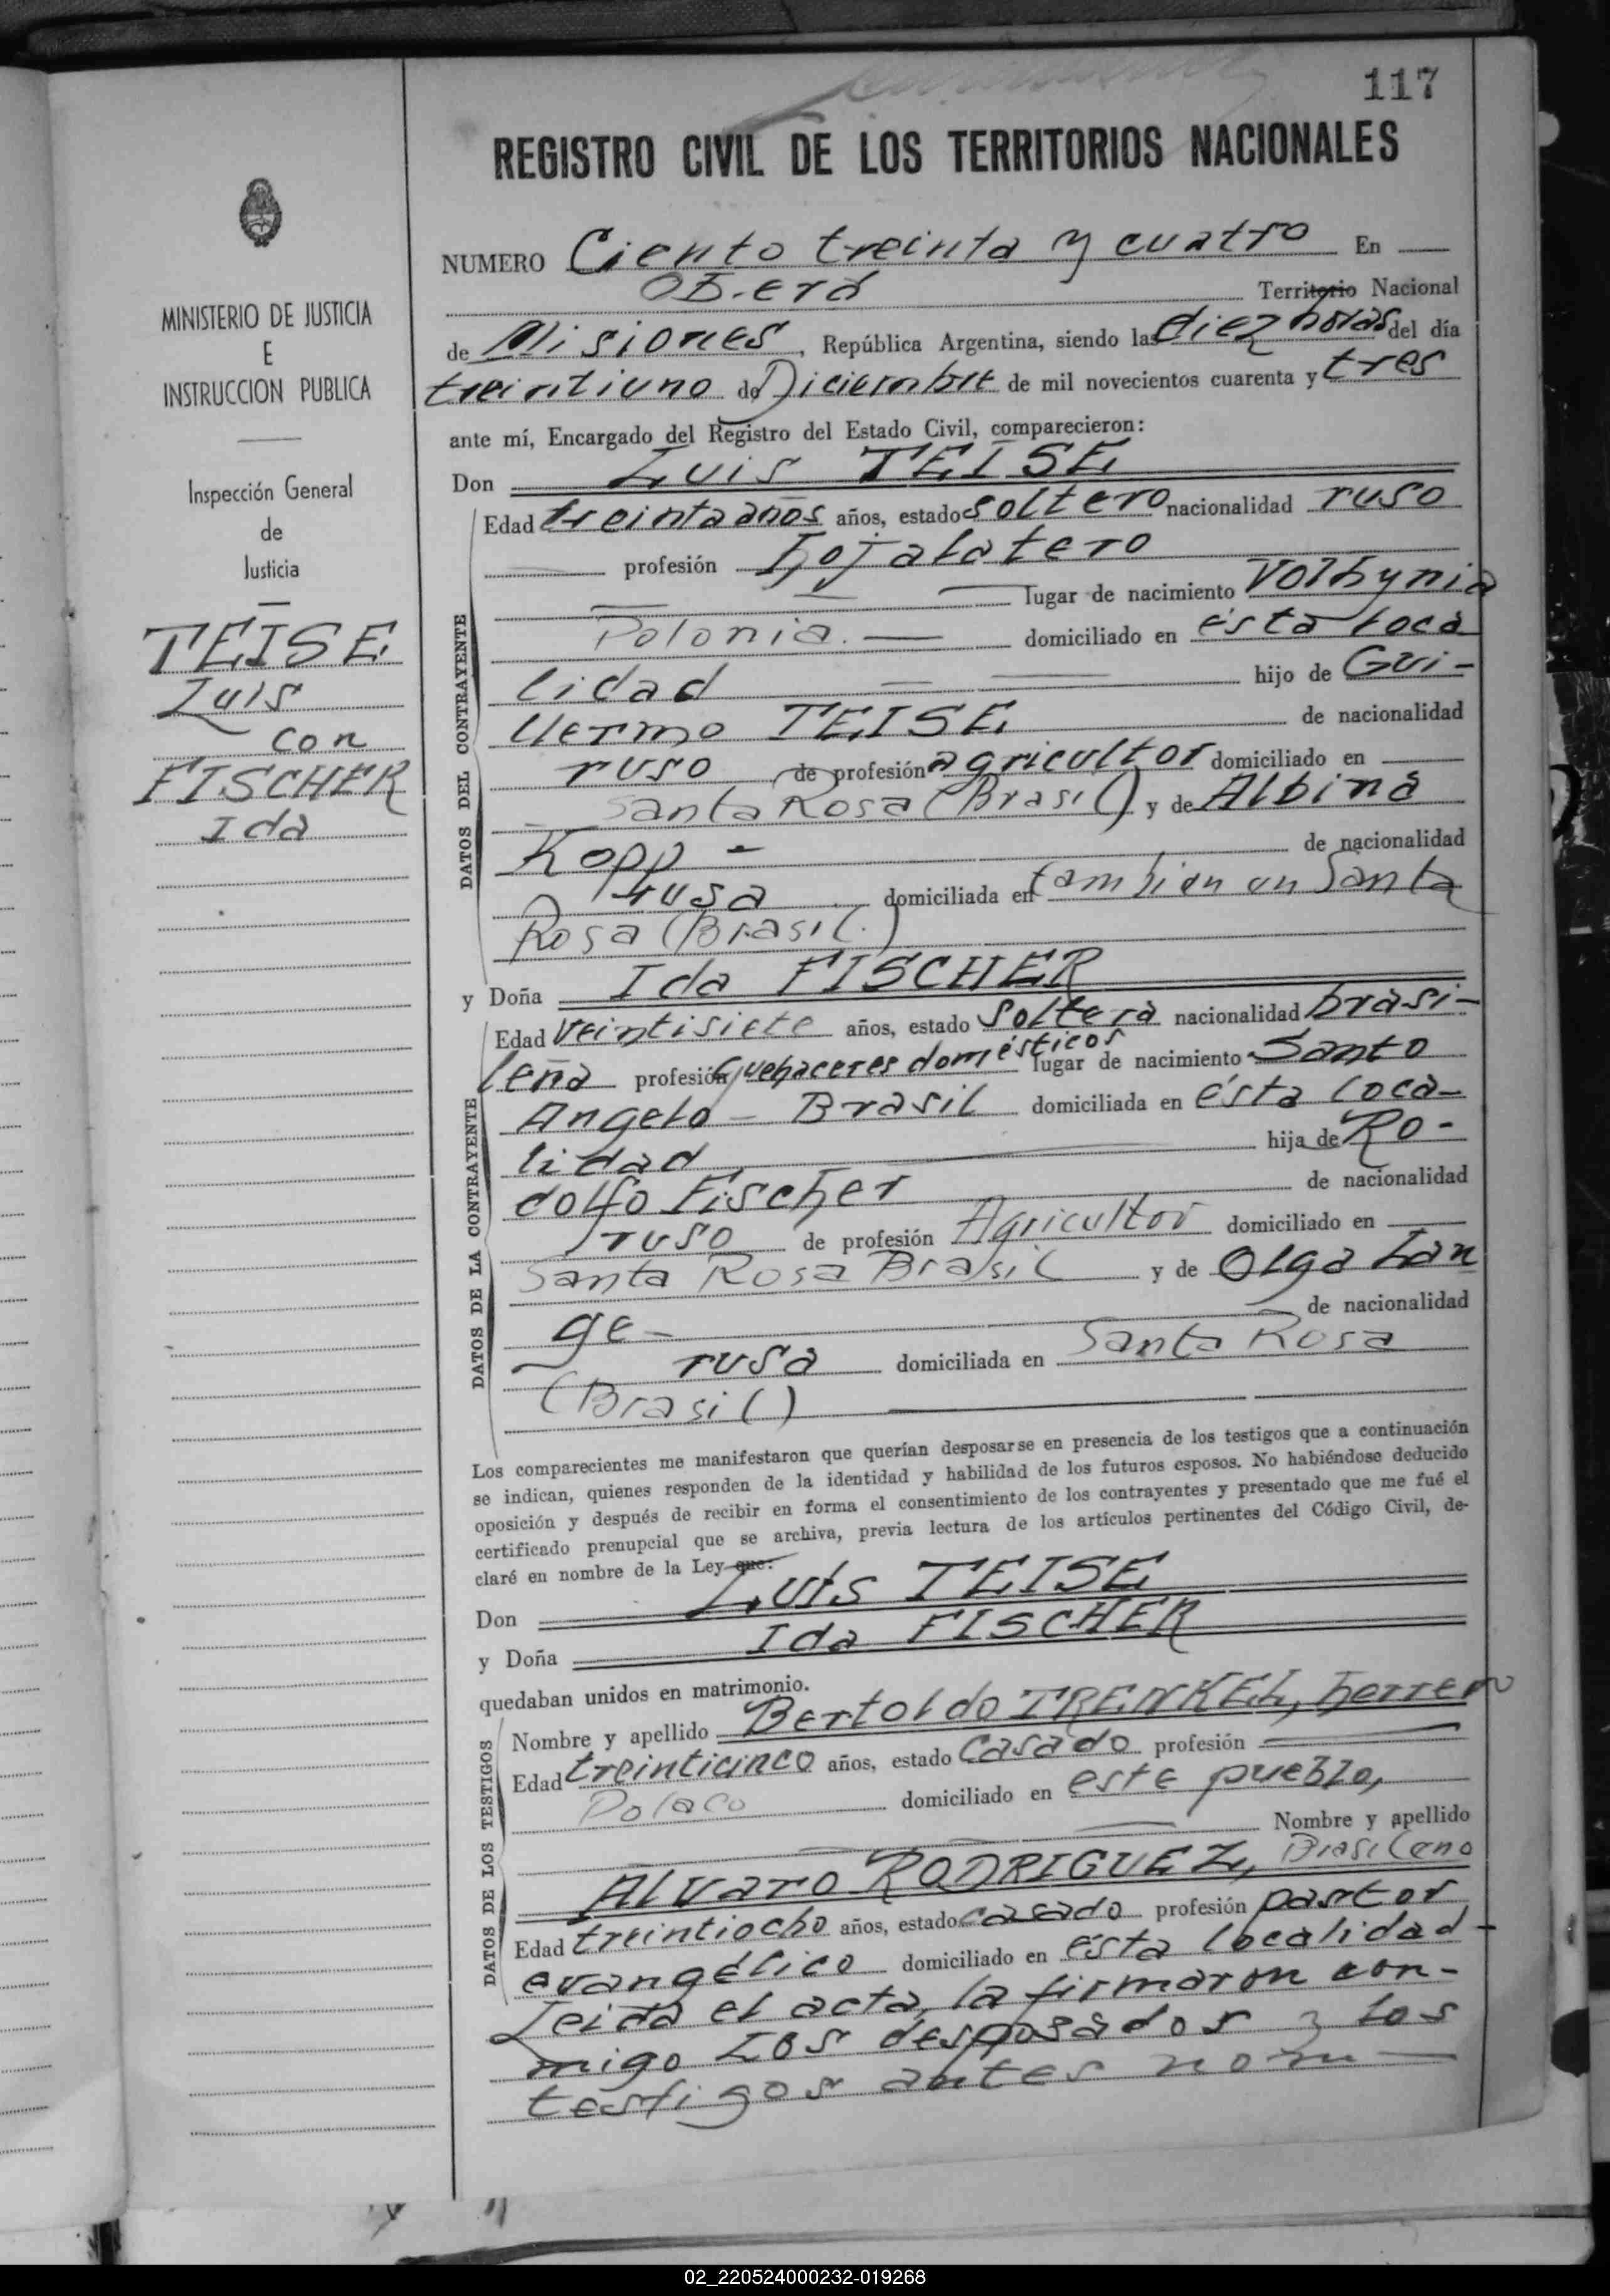 117
REGISTRO CIVIL DE LOS TERRITORIOS NACIONALES
MINISTERIO DE JUSTICIA
E
INSTRUCCION PUBLICA
Inspección General
de
Justicia
TEISE
Luis
con
FISCHER
Ida
NUMERO Ciento treinta y cuatro En
Oberá Territorio Nacional
de Misiones, República Argentina, siendo las diez horas del día
treintiuno de Diciembre de mil novecientos cuarenta y tres
ante mí, Encargado del Registro del Estado Civil, comparecieron:
Don Luis TEISE
DATOS DEL CONTRAYENTE
Edad treinta años años, estado soltero nacionalidad ruso
profesión hojalatero
lugar de nacimiento Volhynia
Polonia. domiciliado en ésta loca
lidad hijo de Gui-
llermo TEISE de nacionalidad
ruso de profesión agricultor domiciliado en
Santa Rosa (Brasil) y de Albina
Kopp - de nacionalidad
rusa domiciliada en tambien en Santa
Rosa (Brasil.)
y Doña Ida FISCHER
DATOS DE LA CONTRAYENTE
Edad veintisiete años, estado soltera nacionalidad brasi-
leña profesión quehaceres domésticos lugar de nacimiento Santo
Angelo - Brasil domiciliada en ésta loca-
lidad hija de Ro-
dolfo Fischer de nacionalidad
ruso de profesión Agricultor domiciliado en
Santa Rosa Brasil y de Olga Lan
ge- de nacionalidad
rusa domiciliada en Santa Rosa
(Brasil)
Los comparecientes me manifestaron que querían desposarse en presencia de los testigos que a continuación
se indican, quienes responden de la identidad y habilidad de los futuros esposos. No habiéndose deducido
oposición y después de recibir en forma el consentimiento de los contrayentes y presentado que me fué el
certificado prenupcial que se archiva, previa lectura de los artículos pertinentes del Código Civil, de-
claré en nombre de la Ley que:
Don Luis TEISE
y Doña Ida FISCHER
quedaban unidos en matrimonio.
DATOS DE LOS TESTIGOS
Nombre y apellido Bertoldo TRENKEL, herrero
Edad treinticinco años, estado casado profesión
Polaco domiciliado en este pueblo,
Nombre y apellido
Alvaro RODRIGUEZ, Brasileno
Edad treintiocho años, estado casado profesión pastor
evangélico domiciliado en ésta localidad-
Leida el acta, la firmaron con-
migo los desposados y los
testigos antes nom-
02_220524000232-019268